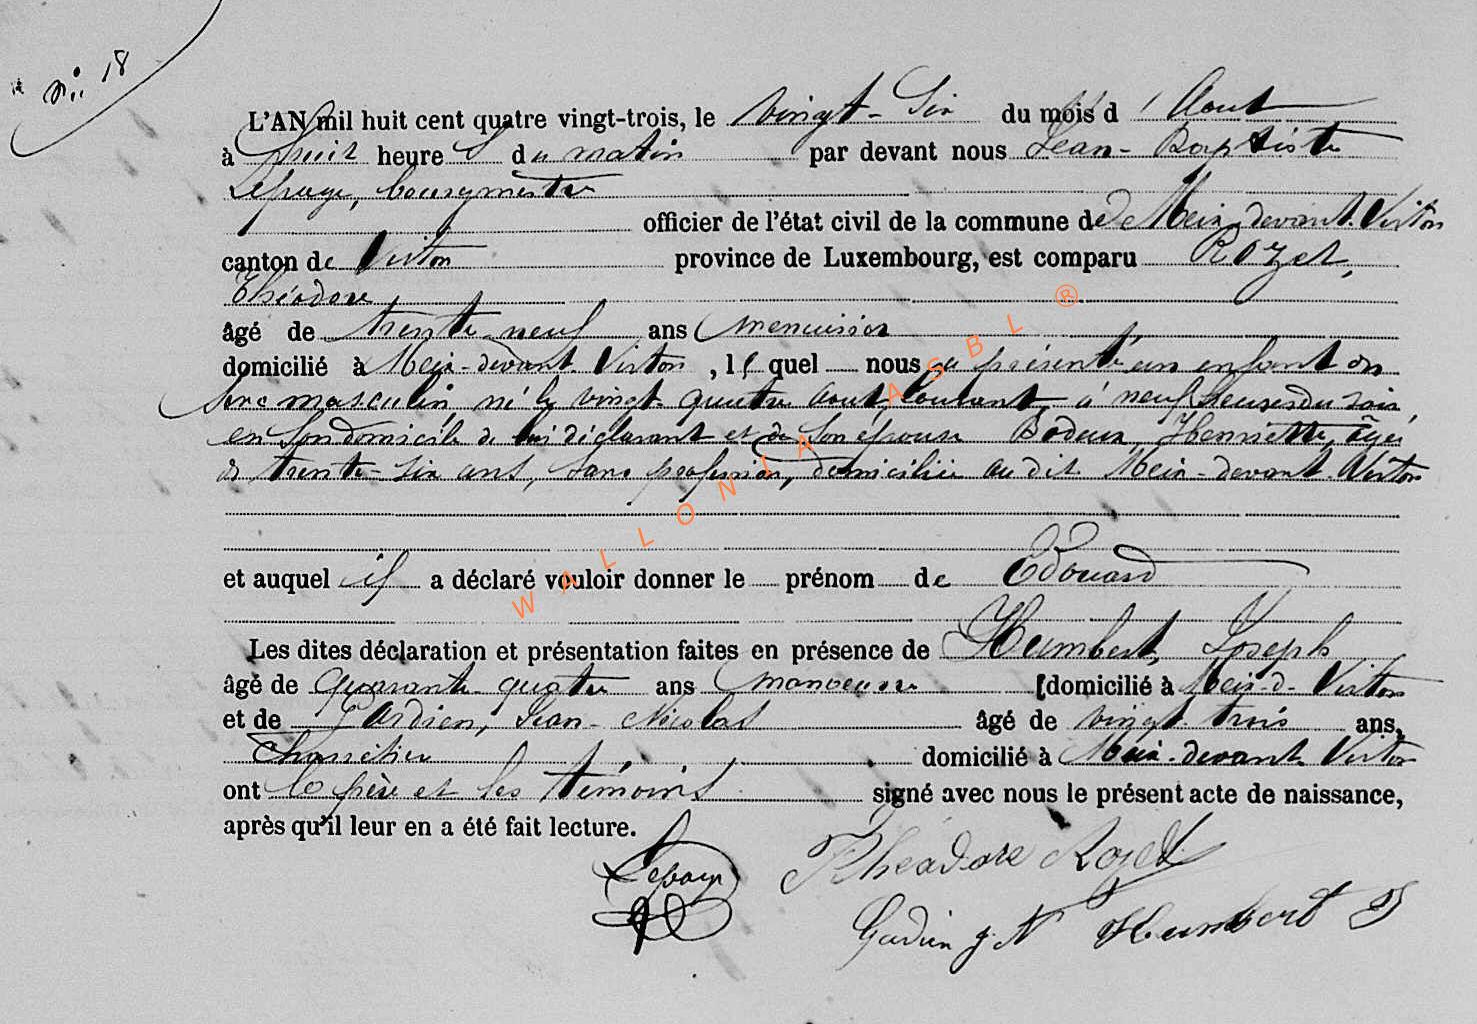 N° 18
L'AN mil huit cent quatre vingt-trois, le vingt-six du mois d'Aout
à huit heures du matin par devant nous Jean-Baptiste
Lepage, bourgmestre
officier de l'état civil de la commune de de Meix-devant-Virton
canton de Virton province de Luxembourg, est comparu Rozet,
Théodore
âgé de trente-neuf ans menuisier
domicilié à Meix-devant Virton, lequel nous a présenté un enfant du
sexe masculin, né le vingt-quatre Aout courant, à neuf heures du soir,
en son domicile de lui déclarant et de son épouse Bodeux, Henriette, âgée
de trente-six ans, sans profession, domiciliée au dit Meix-devant-Virton
et auquel il a déclaré vouloir donner le prénom de Edouard
Les dites déclaration et présentation faites en présence de Humbert, Joseph
âgé de quarante-quatre ans manoeuvre domicilié à Meix-d-Virton
et de Gardien, Jean-Nicolas âgé de vingt-trois ans,
domicilié à Meix-devant-Virton
ont le père et les témoins signé avec nous le présent acte de naissance,
après qu'il leur en a été fait lecture.
Lepage Théodore Rozet
J. N Humbert J
WALLONIA ASBL ®